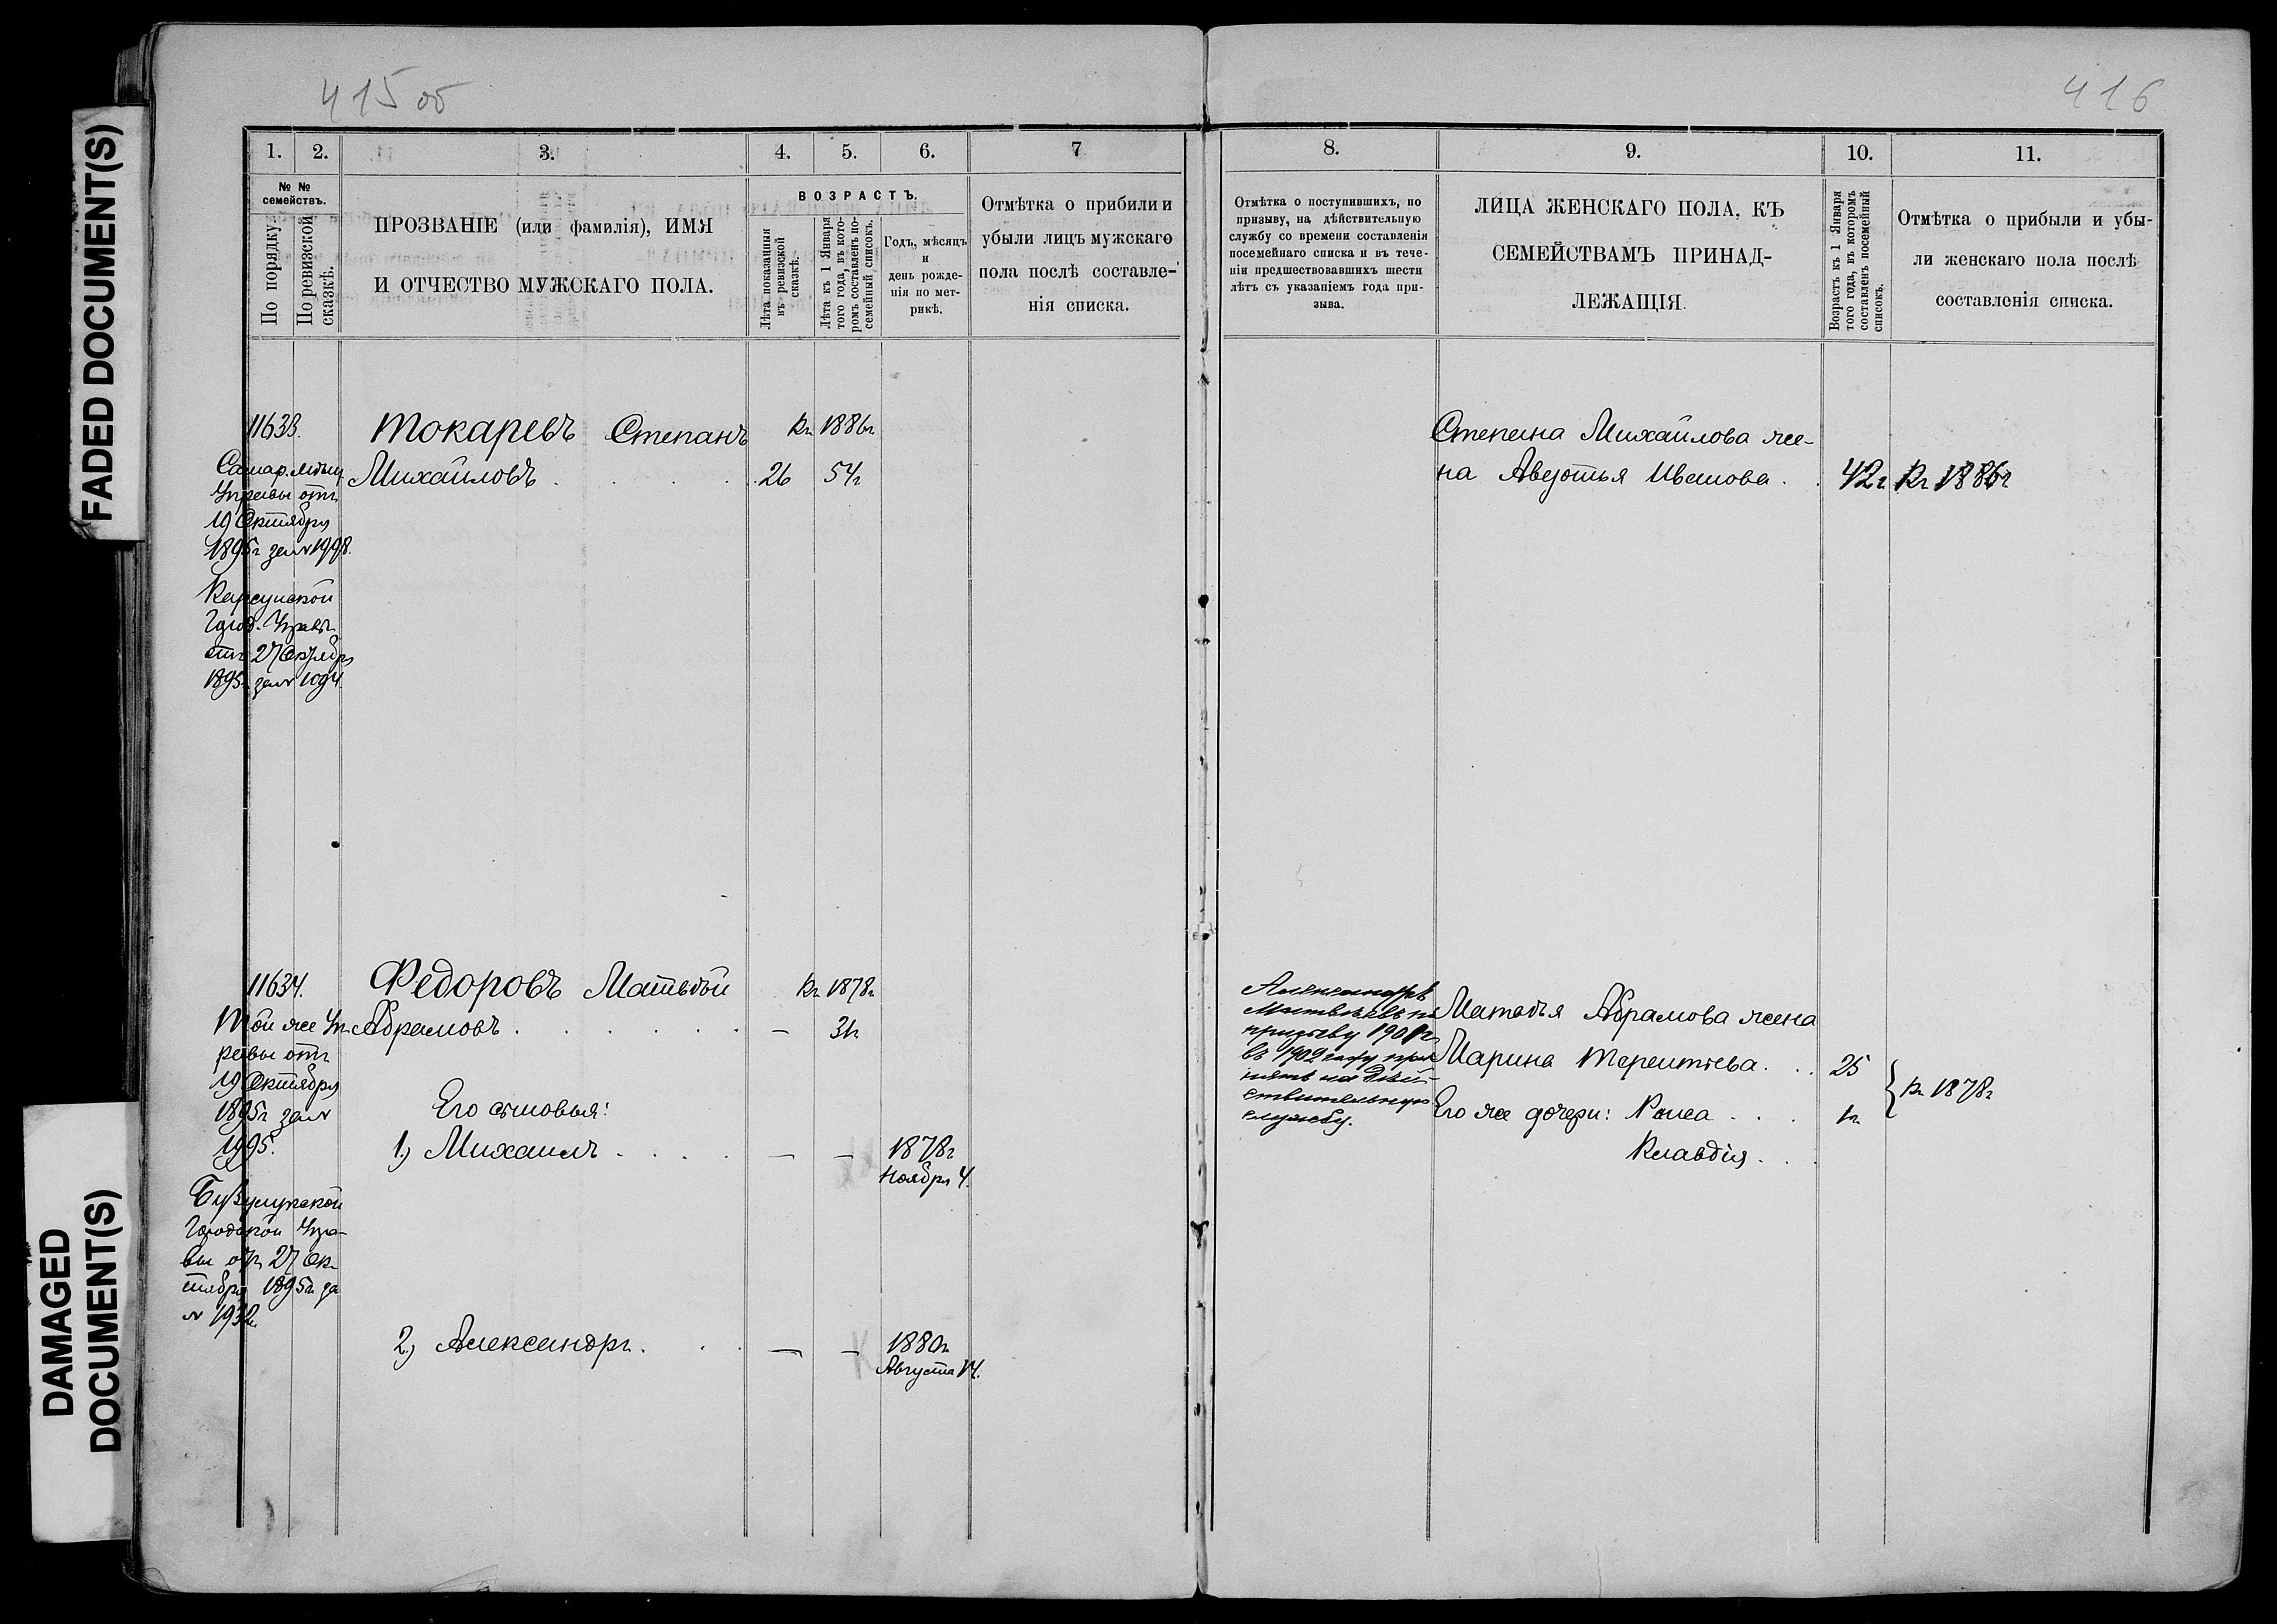 415 об
416
FADED DOCUMENT(S)
DAMAGED
DOCUMENT(S)
1.
2.
3.
4.
5.
6.
7
№ №
семействъ.
По порядку.
По ревизской
сказкѣ.
ПРОЗВАНІЕ (или фамилія), ИМЯ
И ОТЧЕСТВО МУЖСКАГО ПОЛА.
ВОЗРАСТЪ.
Лѣта показанныя
въ ревизской
сказкѣ.
Лѣта къ 1 Января
того года, въ кото-
ромъ составленъ по-
семейный списокъ.
Годъ, мѣсяцъ
и
день рожде-
нія по мет-
рикѣ.
Отмѣтка о прибыли и
убыли лицъ мужскаго
пола послѣ составле-
нія списка.
11633.
Токаревъ Степанъ
Къ 1886г
Михайловъ
26
54г
Самар. мѣщ.
Управы отъ
19 Октября
1895г за № 1998.
Карсунской
Город. Управы
отъ 27 Октября
1895г за № 1094.
11634.
Федоровъ Матвѣй
Къ 1878г
Той же Уп-
Абрамовъ
—
31г
равы отъ
19 Октября
1895г за №
1995.
Его сыновья:
1) Михаилъ
— —
1878г
Ноября 4.
Бузулукской
Городской Упра-
вы отъ 27 Ок-
тября 1895г за
№ 1932.
2) Александръ
— —
1880г
Августа 14.
8.
9.
10.
11.
Отмѣтка о поступившихъ, по
призыву, на дѣйствительную
службу со времени составленія
посемейнаго списка и въ тече-
ніи предшествовавшихъ шести
лѣтъ съ указаніемъ года при-
зыва.
ЛИЦА ЖЕНСКАГО ПОЛА, КЪ
СЕМЕЙСТВАМЪ ПРИНАД-
ЛЕЖАЩІЯ.
Возрастъ къ 1 Января
того года, въ которомъ
составленъ посемейный
списокъ.
Отмѣтка о прибыли и убы-
ли женскаго пола послѣ
составленія списка.
Степана Михайлова же-
на Авдотья Иванова
42г
Къ 1886г
Александръ
Матвѣевъ по
призыву 1901г
въ 1902 году при-
нятъ на Дѣй-
ствительную
службу.
Матвѣя Абрамова жена
Марина Терентьева
25
Его же дочери: Раиса
1г
Къ 1878г
Клавдія